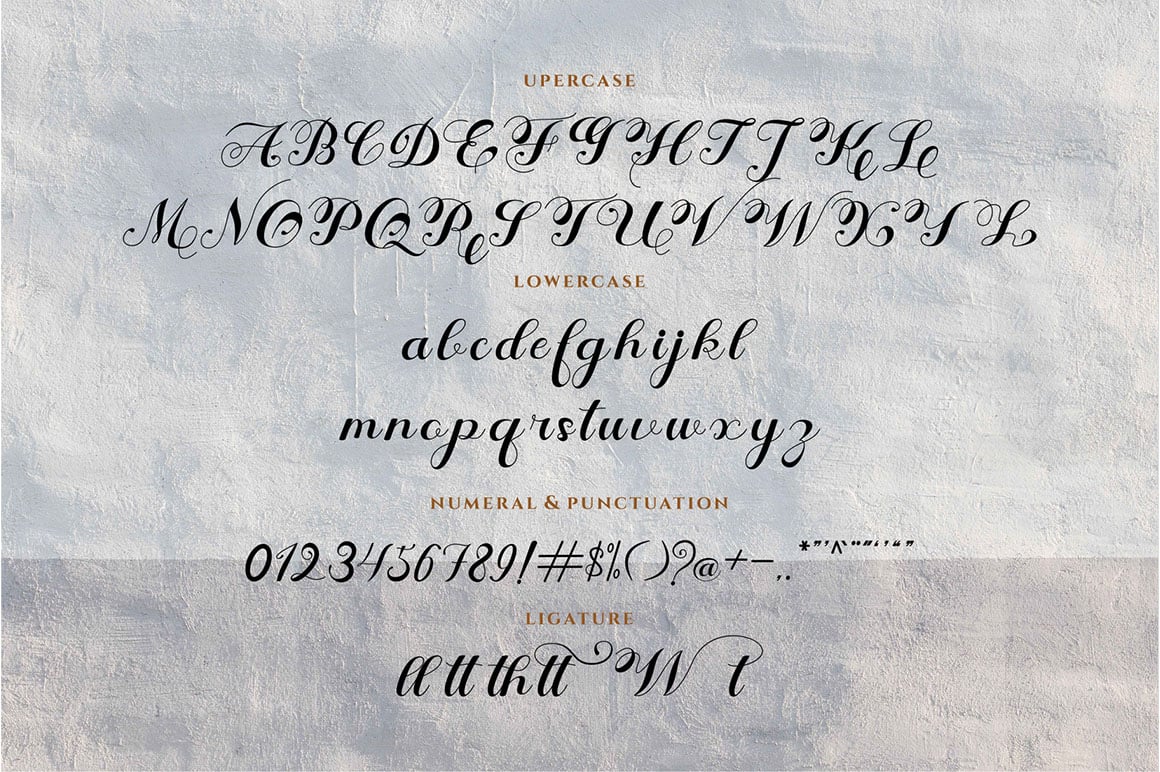 UPERCASE
ABCDEFGHIJKL
MNOPQRSTUVWXYZ
LOWERCASE
abcdefghijkl
mnopqrstuvwxyz
NUMERAL & PUNCTUATION
0123456789!#$%()?@+-,.*"'^`¨"‘’“”
LIGATURE
ll tt th tt W t